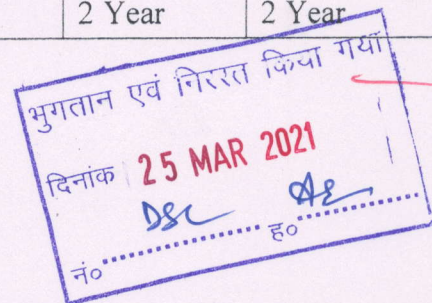 2 Year 2 Year
भुगतान एवं निररत किया गया
दिनांक 25 MAR 2021
DSC
नं० ह०